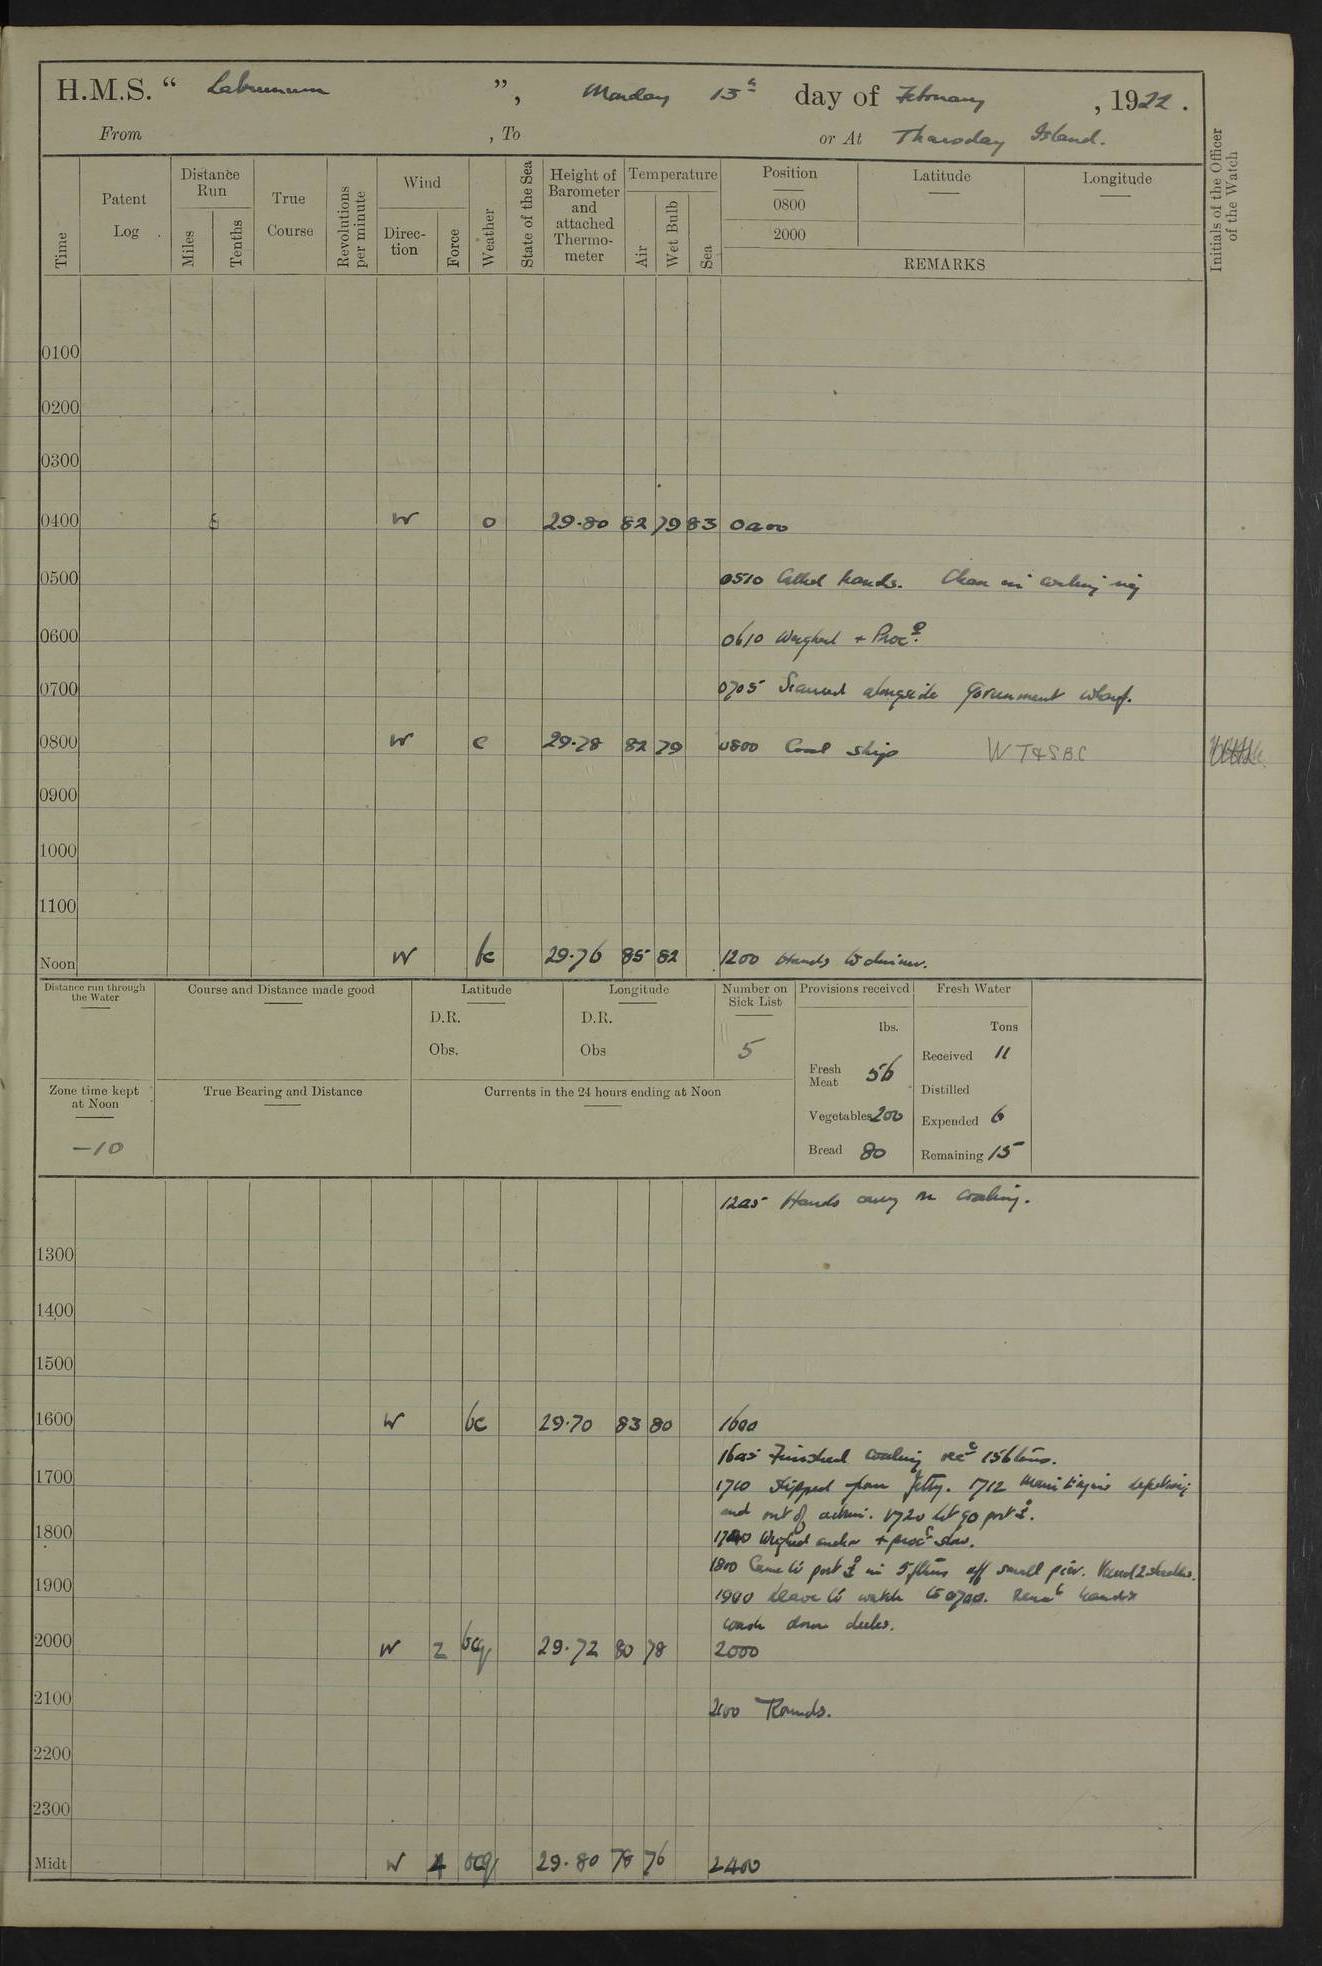 H.M.S. “ Laburnum ”, Monday 13th day of February, 1922.
From , To or At Thursday Island.
Time
Patent Log
Distance Run
Miles
Tenths
True Course
Revolutions per minute
Wind
Direc-tion
Force
Weather
State of the Sea
Height of Barometer and attached Thermo-meter
Temperature
Air
Wet Bulb
Sea
Position
0800
2000
Latitude
Longitude
REMARKS
Initials of the Officer of the Watch
0100
0200
0300
0400 W o 29.80 82 79 83 0400
0500 0510 Called hands. Clean in coaling rig
0600 0610 Weighed + Procd.
0700 0705 Secured alongside Government wharf.
0800 W c 29.78 82 79 0800 Coal ship W T & S B C
0900
1000
1100
Noon W bc 29.76 85 82 1200 Hands to dinner.
Distance run through the Water
Course and Distance made good
Latitude
D.R.
Obs.
Longitude
D.R.
Obs
Number on Sick List
5
Provisions received
lbs.
Fresh Meat 56
Vegetables 200
Bread 80
Fresh Water
Tons
Received 11
Distilled
Expended 6
Remaining 15
Zone time kept at Noon
-10
True Bearing and Distance
Currents in the 24 hours ending at Noon
1245 Hands carry on coaling.
1300
1400
1500
1600 W bc 29.70 83 80 1600
1645 Finished coaling recd 156 tons.
1700 1710 Slipped from Jetty. 1712 Main Engine defective
and out of action. 1720 let go port ⚓.
1800 Weighed anchor + procd slow.
1800 Came to port ⚓ in 5 fthms off small pier. Veered 2 shackles.
1900 1900 Leave to watch to 0700. Remr hands
wash down decks.
2000 W 2 bcq 29.72 80 78 2000
2100 2100 Rounds.
2200
2300
Midt W 4 ocq 29.80 78 76 2400